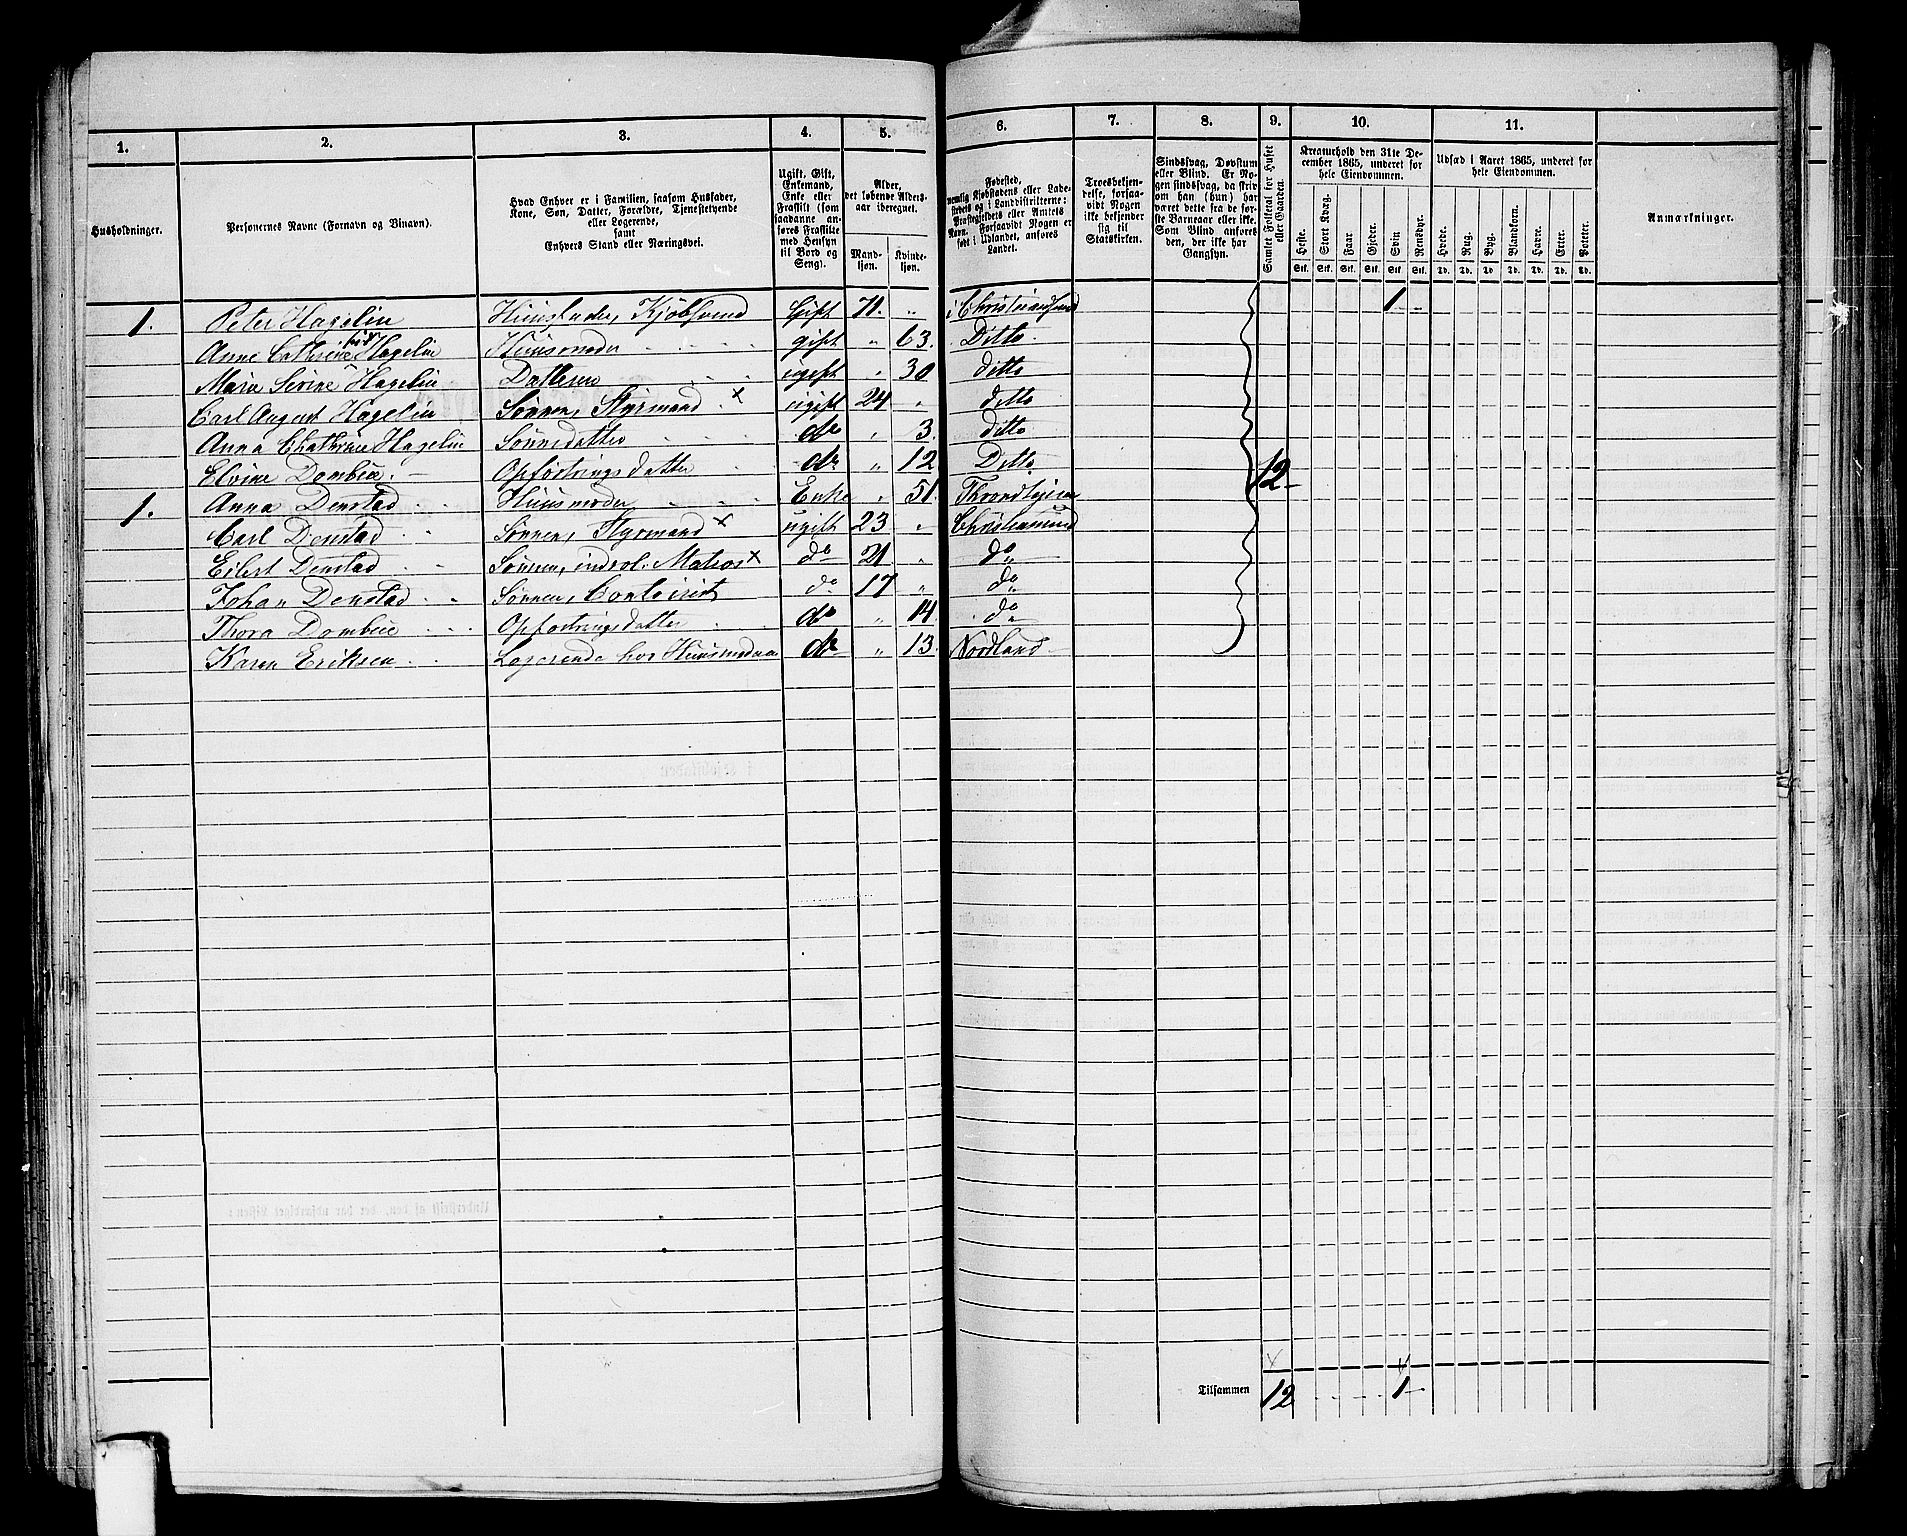 1. 2. 3. 4. 5. 6. 7. 8. 9. 10. 11.
Husholdninger.
Personernes Navne (Fornavn og Binavn).
Hvad Enhver er i Familien, saasom Husfader,
Kone, Søn, Datter, Forældre, Tjenestetyende
eller Logerende,
samt
Enhvers Stand eller Næringsvei.
Ugift, Gift,
Enkemand,
Enke eller
Fraskilt (som
saadanne an-
føres Fraskilte
med Hensyn
til Bord og
Seng).
Alder,
det løbende Alders-
aar iberegnet.
Mand-
kjøn.
Kvinde-
kjøn.
Fødested,
nemlig Kjøbstadens eller Lade-
stedets og i Landdistrikterne:
Præstegjeldets eller Amtets
Navn. Forsaavidt Nogen er
født i Udlandet, anføres
Landet.
Troesbekjen-
delse, forsaa-
vidt Nogen
ikke bekjender
sig til
Statskirken.
Sindssvag, Døvstum
eller Blind. Er No-
gen sindssvag, da skriv
om han (hun) har
været dette fra de før-
ste Barneaar eller ikke.
Som Blind anføres
den, der ikke har
Gangsyn.
Samlet Folketal for Huset
eller Gaarden.
Kreaturhold den 31te De-
cember 1865, underet for
hele Eiendommen.
Heste. Stort Kvæg. Faar. Gjeder. Svin Rensdyr.
Stk. Stk. Stk. Stk. Stk. Stk.
Udsæd i Aaret 1865, underet for
hele Eiendommen.
Hvede. Rug. Byg. Blandkorn. Havre. Erter. Poteter.
Td. Td. Td. Td. Td. Td. Td.
Anmærkninger.
1. Peter Hagelin Huusfader, Kjøbsvend Gift 71. „ i Christiansund 1
Anne Cathrine Hagelin Huusmoder gift „ 63. Ditto
Marie Serine Hagelin Datteren ugift „ 30 ditto
Carl August Hagelin Sønnen, Styrmand x ugift 24 „ ditto
Anna Chathrine Hagelin Sønnedatter do „ 3. ditto
Elvine Dombeie. Opfostringsdatter do „ 12 Ditto 12
1. Anna Denstad Huusmoder Enke „ 51. Throndhjem
Carl Denstad Sønnen, Styrmand x ugift 23 „ Christiansund
Eilert Denstad Sønnen, indrol. Matros x do 21 „ do
Johan Denstad Sønnen, Contoirist do 17 „ do
Thora Dombeie Opfostringsdatter do „ 14. do
Karen Eriksen Logerende hos Huusmoderen do „ 13. Nordland
Tilsammen 12 1